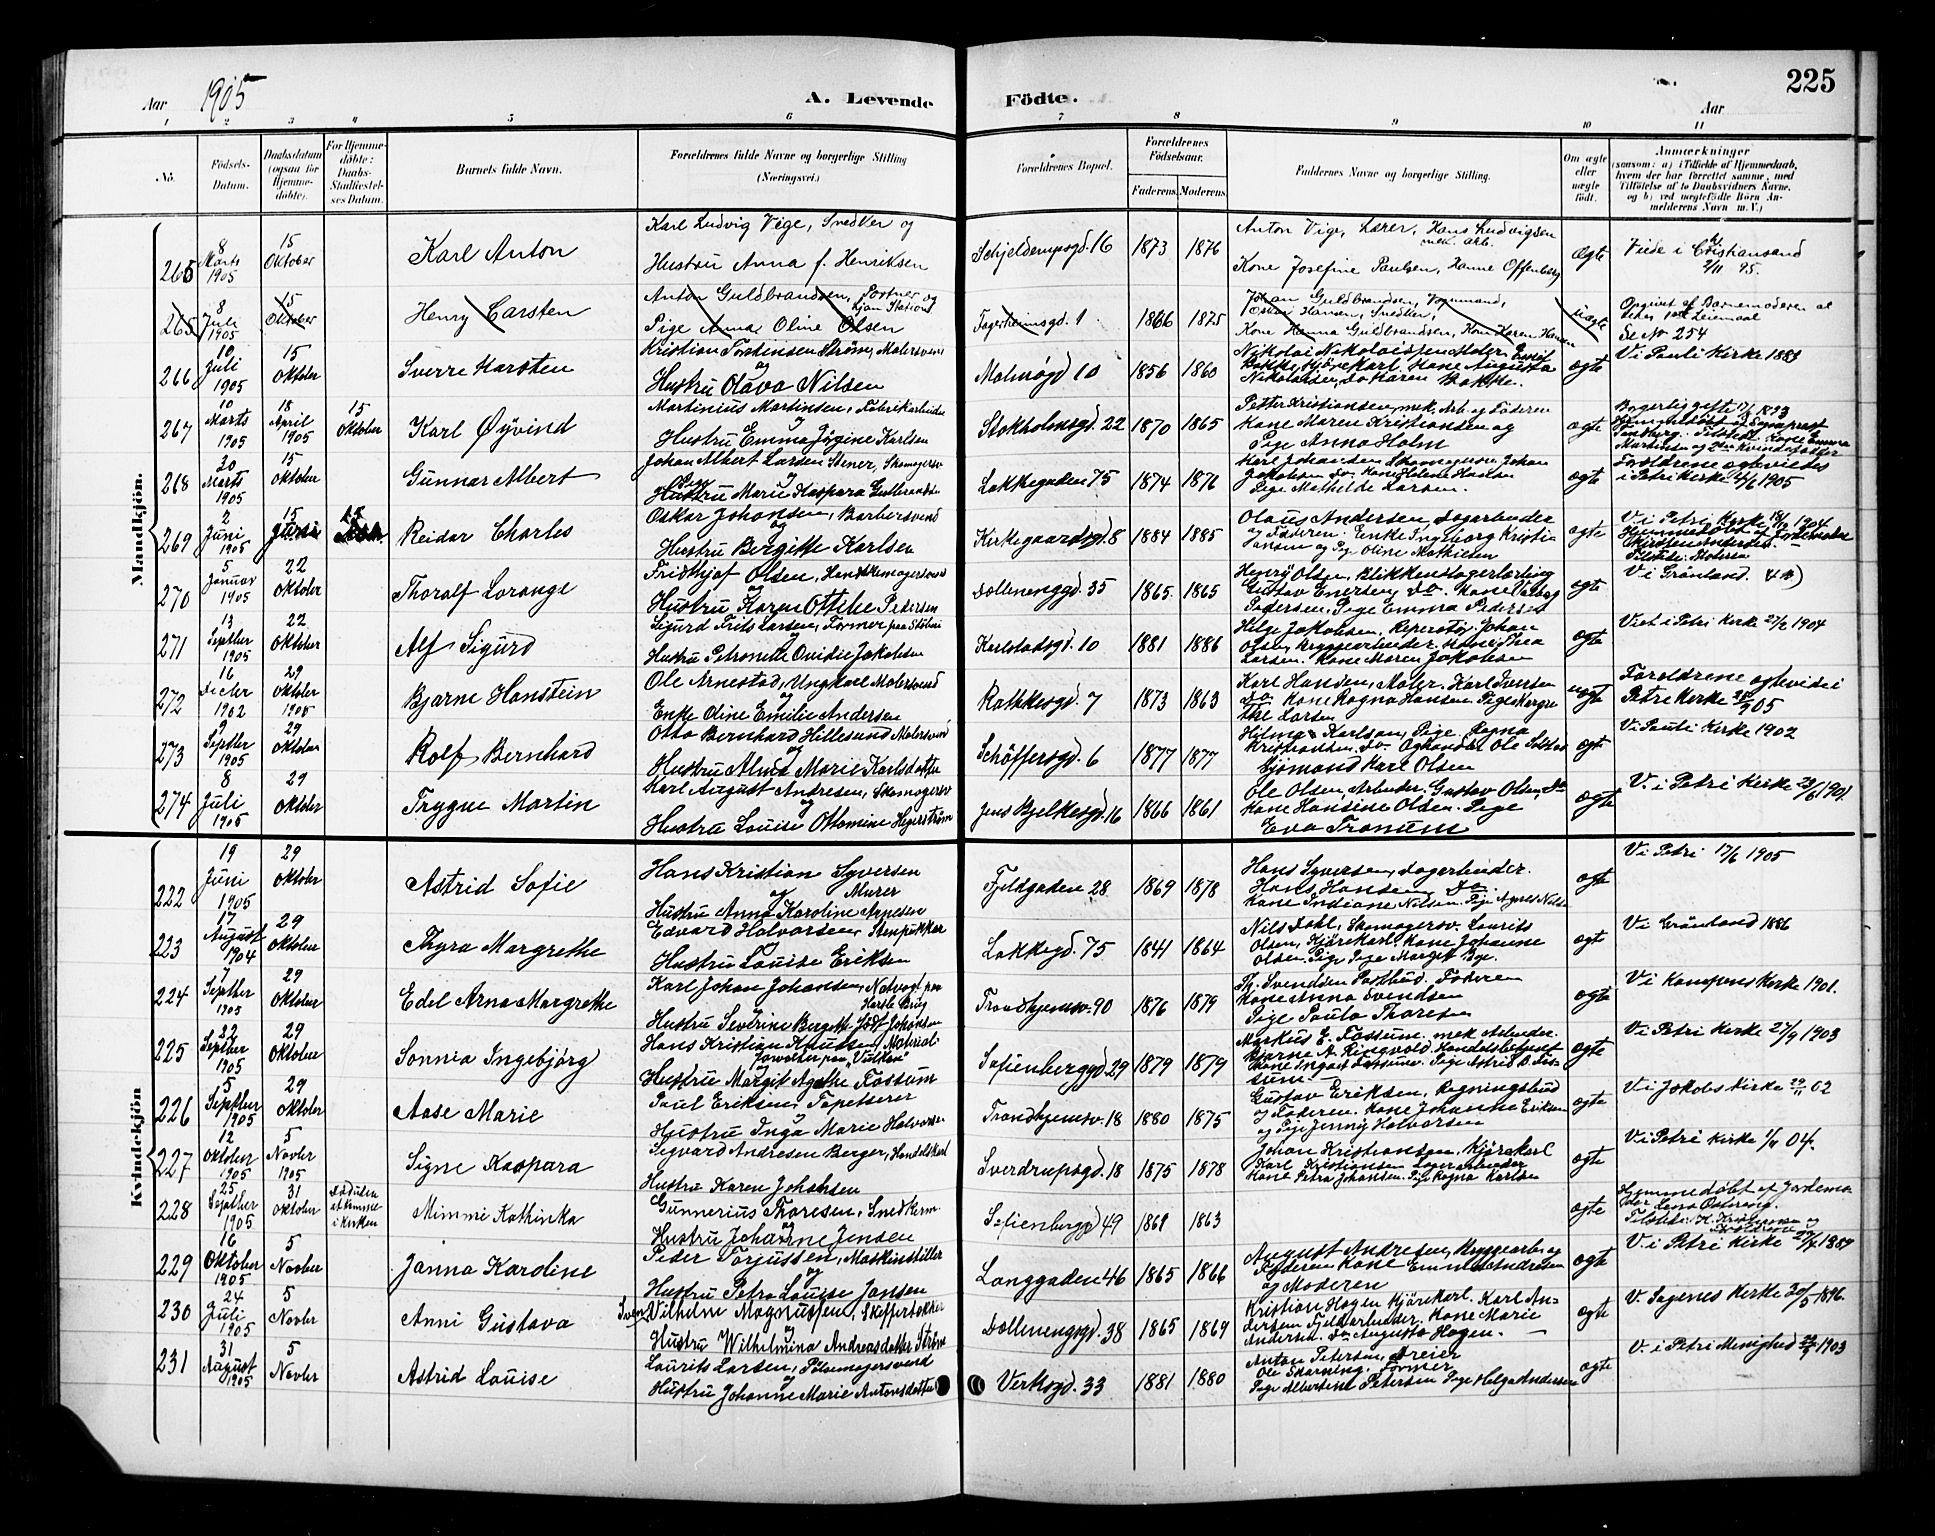 225
Aar 1905
A. Levende Födte.
Aar
1 2 3 4 5 6 7 8 9 10 11
No.
Födsels-Datum.
Daabsdatum (ogsaa for Hjemmedöbte).
For Hjemmedöbte: Daabs-Stadfæstelses Datum.
Barnets fulde Navn.
Forældrenes fulde Navne og borgerlige Stilling (Næringsvei.)
Forældrenes Bopæl.
Forældrenes Födselsaar.
Faderens. Moderens.
Faddernes Navne og borgerlige Stilling.
Om ægte eller uægte födt.
Anmærkninger
(saasom: a) i Tilfælde af Hjemmedaab, hvem der har forrettet samme, med Tilföielse af to Daabsvidners Navne, og b) ved uægtefödte Börn Anmelderens Navn m. V.)
Mandkjön.
265 8 Marts 1905 15 Oktober Karl Anton
Karl Ludvig Vige, Snedker og Hustru Anna f. Henriksen
Schjelderupsgd. 16 1873 1876
Anton Vige, Lærer, Hans Ludvigsen mek. arb. Kone Josefine Paulsen, Hanne Offenberg
ægte Viede i Christiansand 2/11 95.
265 8 Juli 1905 15 Oktober Henry Carsten
Anton Guldbrandsen, Portner og Pige Anna Oline Olsen
Fagerheimsgd. 1 1866 1875
Johan Guldbrandsen, Oskar Hansen, Snedker, Kone Hanna Guldbrandsen, Kone Karen Hansen
uægte Opgivet af Barnemoderen Se No 254
266 10 Juli 1905 15 Oktober Sverre Karsten
Kristian Torstensen Ström, Malersvend og Hustru Olava Nilsen
Malmögd 10 1856 1860
Nikolai Nikolaissen Maler Kjörekarl. Kone Augusta Nikolaisen, Do Karen Bakke.
ægte Vi Pauli Kirke 1883
267 10 Marts 1905 18 April 1905 15 Oktober Karl Öyvind
Martinius Martinsen, Fabrikarbeider Hustru Emma Jörgine Karlsen
Stokholmsgd. 22 1870 1865
Petter Kristiansen, mek. Arb. og Faderen Kone Maren Kristiansen og Pige Anna Holm
ægte Borgerlig gifte 17/6 1893
268 30 Marts 1905 15 Oktober Gunnar Albert
Johan Albert Larsen Stener, Skomagersv og Hustru Marie Kaspara Gulbrandsen
Lakkegaden 75 1874 1876
Karl Johansen Skomagersv. Johan Jakobsen Do. Kone Helene Hansen Pige Mathilde Larsen.
ægte Foreldrene ægtevides i Petri Kirke 4/6 1905
269 2 Juni 1905 15 Reidar Charles
Oskar Johansen, Barbersvend og Hustru Bergitte Karlsen
Kirkegaardsgd. 8 1884 1885
Olaus Andersen, Lagerbeider og Faderen. Enke Ingeborg Kristiansen og Pg. Oline Mathiesen
ægte Vi Petri Kirke 18/12 1904
270 5 Januar 1905 22 Oktober Thoralf Lorange
Fridthjof Olsen, Handskemagersvend og Hustru Karen Ottilie Pedersen
Dælenenggd. 35 1865. 1865
Henry Olsen, Blikkenslagerlærling Gustav Enersen, Do. Pedersen. Pige Emma Pedersen
ægte Vi Grönland.
271 13 Septber 1905 22 Oktober Alf Sigurd
Sigurd Frits Larsen, Former og Hustru Petronelle Ovidie Jakobsen
Karlstadsgd. 10 1881 1886
Helge Jakobsen, Reperatör. Johan Olsen, Bryggearbeider. Larsen. Kone Maren Jakobsen
ægte Viet i Petri Kirke 21/2 1904
272 16 Decber 1902 29 Oktober 1905 Bjarne Hanstein
Ole Arnestad, Ungkarl Malersvend og Enke Oline Emilie Andersen
Rathkesgd. 7 1873 1863
Karl Hansen, Maler. Karl Svensen Do. Kone Ragna Hansen. Pige Larsen
uægte Foreldrene ægtevide i Petri Kirke 1905
273 9 Septber 1905 29 Oktober Rolf Bernhard
Otto Bernhard Hillesund Malersvend og Hustru Alma Marie Karlsdatter
Schöffersgd. 6 1877 1877
Hilma Karlson, Pige. Ragna Kristiansen. Do. Ole Solstad Sjömand Karl Olsen
ægte Vi Pauli Kirke 1902
274 8 Juli 1905 29 Oktober Trygve Martin
Karl August Andresen, Skomagersv og Hustru Louise Ottomine Hegerström
Jens Bjelkesgd. 16 1866 1861
Ole Olsen, Arbeider. Gustav Olsen, Do Kone Hansine Olsen. Pige Eva Tranum
ægte V. i Petri Kirke 23/6 1901.
Kvindekjön
222 19 Juni 1905 29 Oktober Astrid Sofie
Hans Kristian Syversen Murer og Hustru Anna Karoline Arnesen
Fjeldgaden 28 1869 1878
Hans Syversen, Lagerbeider. Hans Hansen Do. Kone Indiane Nilsen. Pige Agnes Nilsen
ægte Vi Petri 17/6 1905
223 17 August 1904 29 Oktober Thyra Margrethe
Edvard Halvorsen, Stenpukker og Hustru Louise Eriksen
Lakkegd. 75 1841 1864
Nils Dahl, Skomagersv. Laurits Olsen, Kjörekarl, Kone Johanne Olsen, Pige Marget Bye.
ægte Vi Grönland 1886
224 7 Septber 1905 29 Oktober Edel Arna Margrethe
Karl Johan Johansen, Natvagt paa Hustru Severine Födt Johansen
Trondhjemsv. 90 1876 1879
Th. Svendsen Postbud. Faderen Kone Anna Svendsen Pige Paula Thoresen
ægte Vi Kampens Kirke 1901.
225 22 Septber 1905 29 Oktober Sonnia Ingebjörg
Hans Kristian Knutsen, Material-forvalter paa „Vulkan” Hustru Margit Agathe Fossum
Sofienberggd 29 1879 1879
Markus E. Fossum mek Arbeider. Bjarne A. Ringvold, Handelsbetjent Kone Ingvarda Fossum. Pige Astrid D. Fossum.
ægte Vi Petri Kirke 27/9 1903
226 5 Septber 1905 29 Oktober Aase Marie
Paul Eriksen, Tapetserer Hustru Inga Marie Halvorsen
Trondhjemsv. 18 1880 1875
Gustav Eriksen, Regningsbud og Faderen. Kone Johanne Eriksen og Pige Jenny Halvorsen
ægte Vi Jakobs Kirke 02
227 12 Oktober 1905 5 Novber 1905 Signe Kaspara
Sigvard Andresen Berger, Handelskarl Hustru Karen Johansen
Sverdrupsgd. 18 1875 1878
Johan Kristiansen, Kjörekarl Karl Kristiansen Lagerarbeider Kone Petra Johansen. Pige Ragna Karlson
ægte Vi Petri Kirke 04.
228 25 Septber 1905 31 Oktober Död uden at komme i Kirken Mimmi Kathinka
Gunnerius Thoresen, Snedkerm. og Hustru Johanne Jensen
Sofienberggd 49 1861 1863
ægte Hjemmedöbt af Jordemoder
229 16 Oktober 1905 5 Novber Janna Karoline
Peder Torjussen, Maskinstiller og Hustru Petra Louise Jansen
Langgaden 46 1865 1866
August Andresen, Bryggearb. og Faderen Kone Emma Andresen og Moderen
ægte V. i Petri Kirke 1889
230 24 Juli 1905 5 Novber Anni Gustava
Sven Vilhelm Magnussen, Skiffertækker og Hustru Wilhelmina Andreasdatter
Dælenenggd. 38 1865 1869
Kristian Hagen Kjörekarl. Karl Andersen Fjeldarbeider. Kone Marie Andersen. Do. Augusta Hagen.
ægte V. Sagenes Kirke 20/5 1896.
231 31 August 1905 5 Novber Astrid Louise
Laurits Larsen, Skomagersvend og Hustru Johanne Marie Antonsdatter
Verksgd. 33 1881 1880
Anton Petersen, Dreier Ole Skarning, Former Pige Albertine Petersen Pige Helga Andersen
ægte V. i Petri Menighed 1903